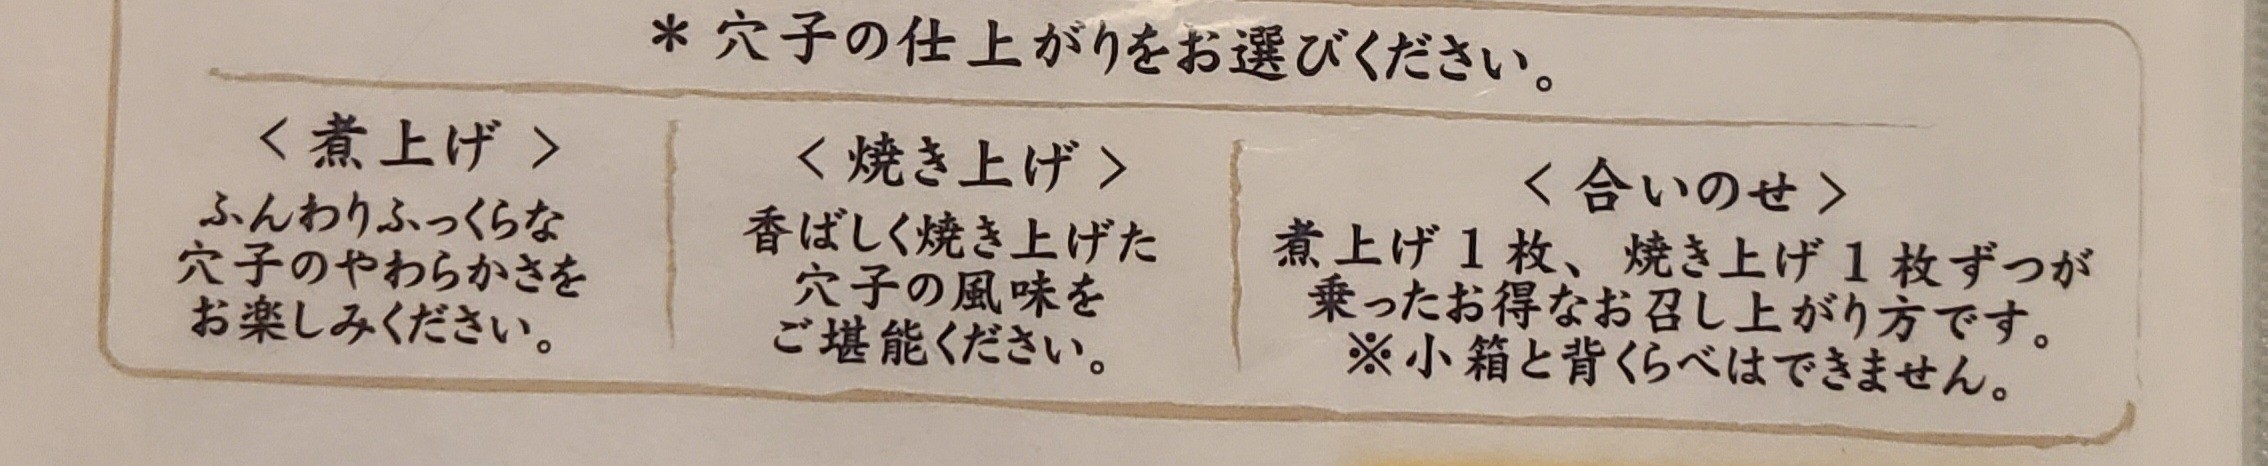 ＊穴子の仕上がりをお選びください。
＜煮上げ＞
ふんわりふっくらな
穴子のやわらかさを
お楽しみください。
＜焼き上げ＞
香ばしく焼き上げた
穴子の風味を
ご堪能ください。
＜合いのせ＞
煮上げ１枚、焼き上げ１枚ずつが
乗ったお得なお召し上がり方です。
※小箱と背くらべはできません。